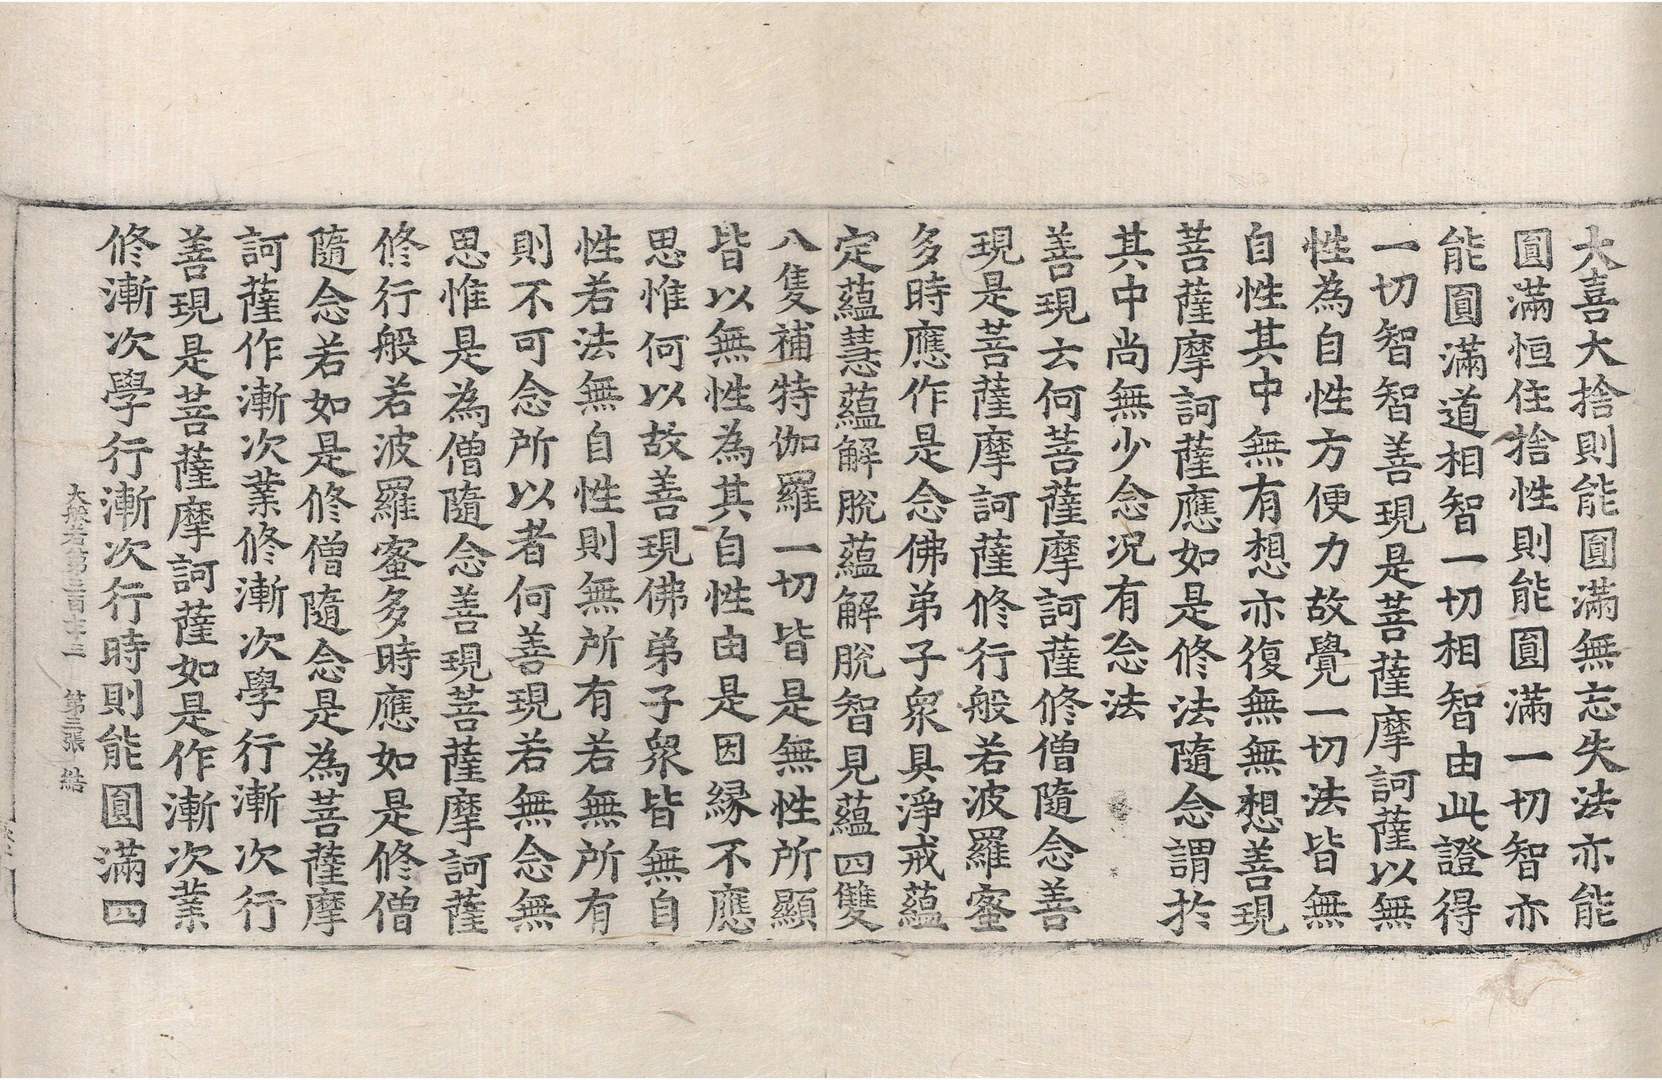 大喜大捨則能圓滿無忘失法亦能
圓滿恒住捨性則能圓滿一切智亦
能圓滿道相智一切相智由此證得
一切智智善現是菩薩摩訶薩以無
性為自性方便力故覺一切法皆無
自性其中無有想亦復無無想善現
菩薩摩訶薩應如是修法隨念謂於
其中尚無少念况有念法
善現云何菩薩摩訶薩修僧隨念善
現是菩薩摩訶薩修行般若波羅蜜
多時應作是念佛弟子衆具淨戒蘊
定蘊慧蘊解脫蘊解脫智見蘊四雙
八隻補特伽羅一切皆是無性所顯
皆以無性為其自性由是因緣不應
思惟何以故善現佛弟子衆皆無自
性若法無自性則無所有若無所有
則不可念所以者何善現若無念無
思惟是為僧隨念善現菩薩摩訶薩
修行般若波羅蜜多時應如是修僧
隨念若如是修僧隨念是為菩薩摩
訶薩作漸次業修漸次學行漸次行
善現是菩薩摩訶薩如是作漸次業
修漸次學行漸次行時則能圓滿四
大般若第三百七十三 第三張 結